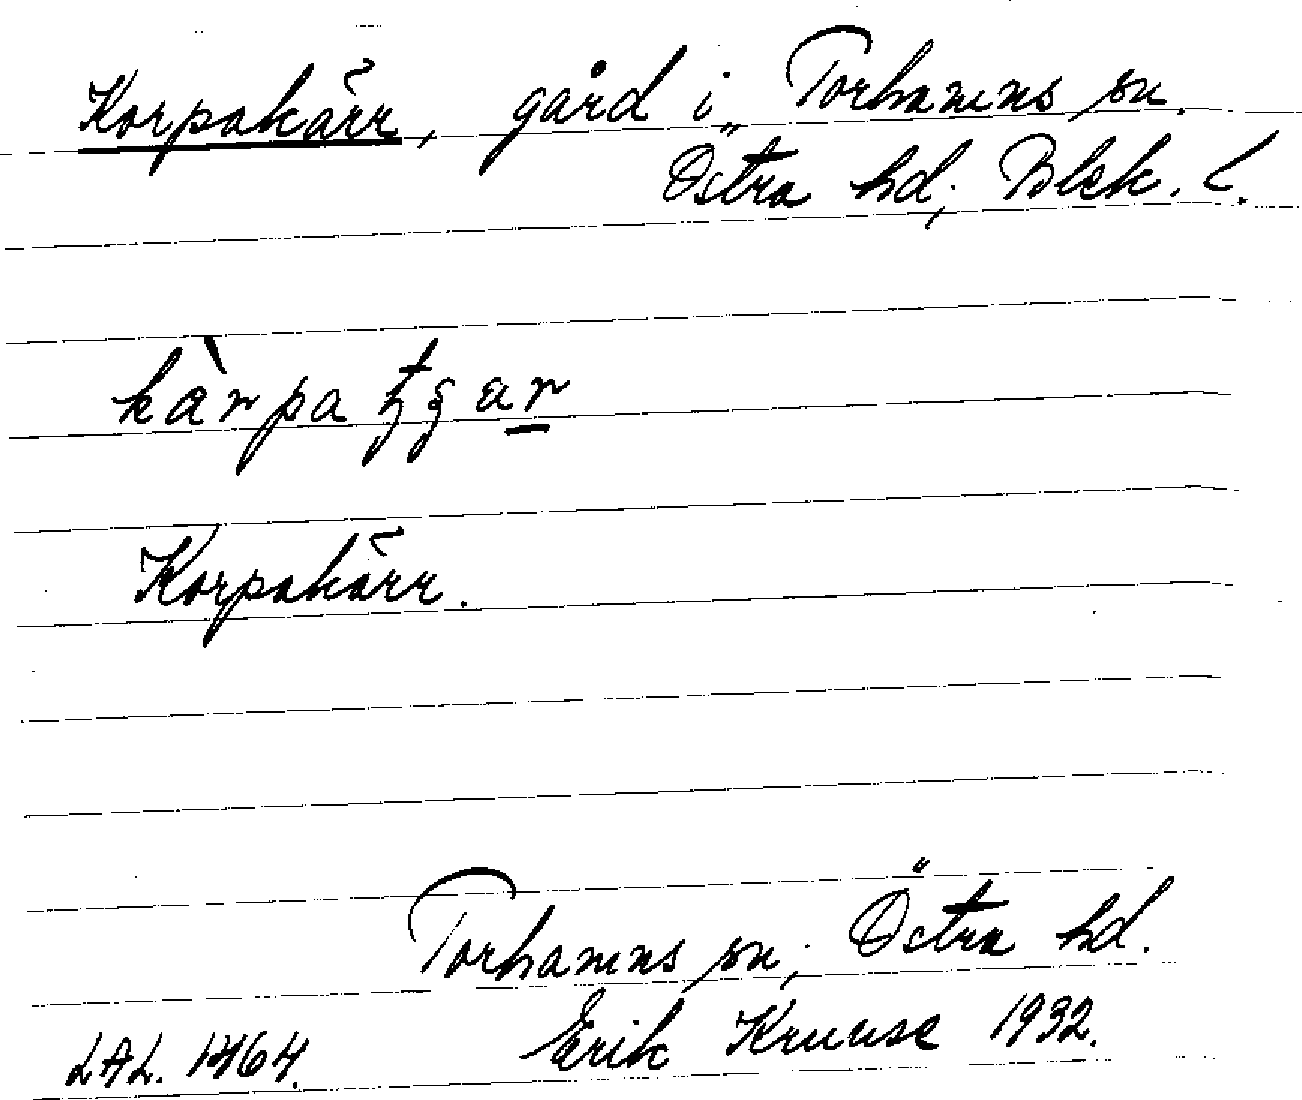 Korpakärr, gård i Torhamns sn.
Östra hd, Blek. L.
kàrpa
Korpakärr.
Torhamns sn, Östra hd.
LAL. Erik Kruuse 1932.